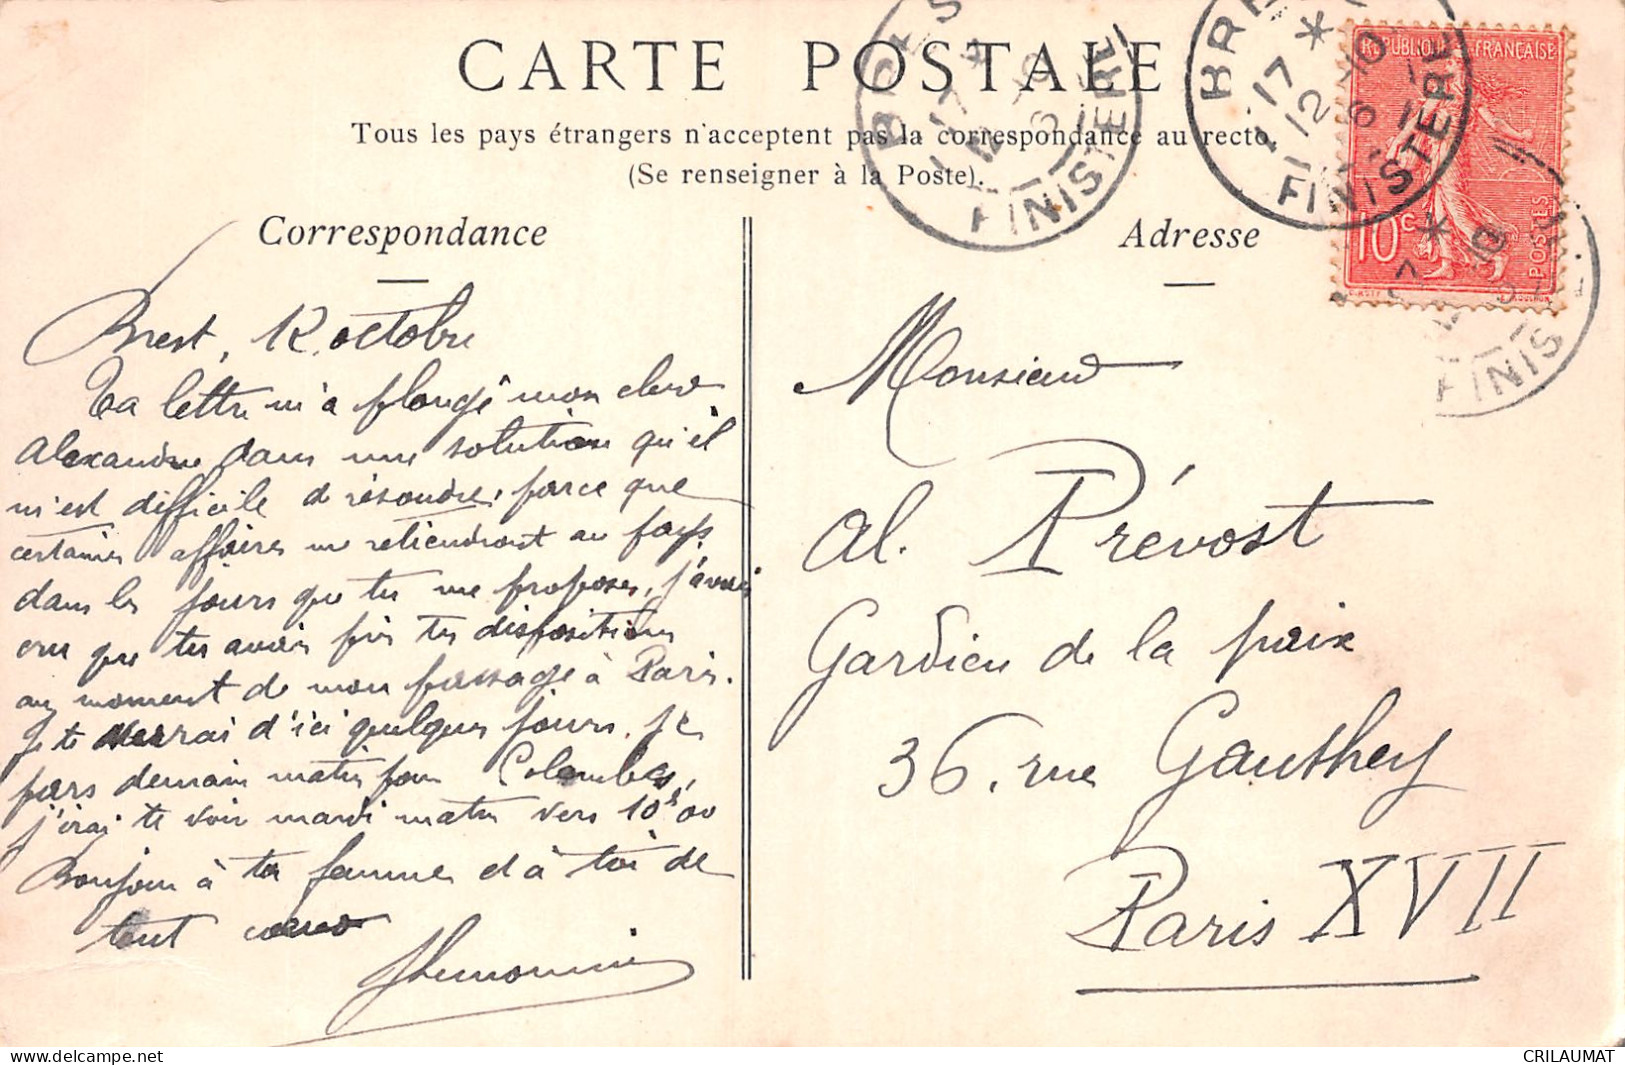 CARTE POSTALE
Tous les pays étrangers n'acceptent pas la correspondance au recto.
(Se renseigner à la Poste).
Correspondance
Adresse
BREST
17 * 12 -10 6
FINISTERE
BREST
17 * 12 -10 6
FINISTERE
17 * 12 -10
FINIS
REPUBLIQUE FRANÇAISE
10c
POSTES
Brest, 12 octobre
Ta lettre m'a plongé mon cher
Alexandre dans une solution qu'il
m'est difficile de résoudre, parce que
certaines affaires me retiendront au pays
dans les jours que tu me proposes, j'avais
cru que tu avais pris tes dispositions
au moment de mon passage à Paris.
Je te verrai d'ici quelques jours, je
pars demain matin pour Colombes,
j'irai te voir mardi matin vers 10h00
Bonjour à ta femme et à toi de
tout cœur
Monsieur
Al. Prévost
Gardien de la paix
36, rue Gauthey
Paris XVII
delcampe.net
CRILAUMAT